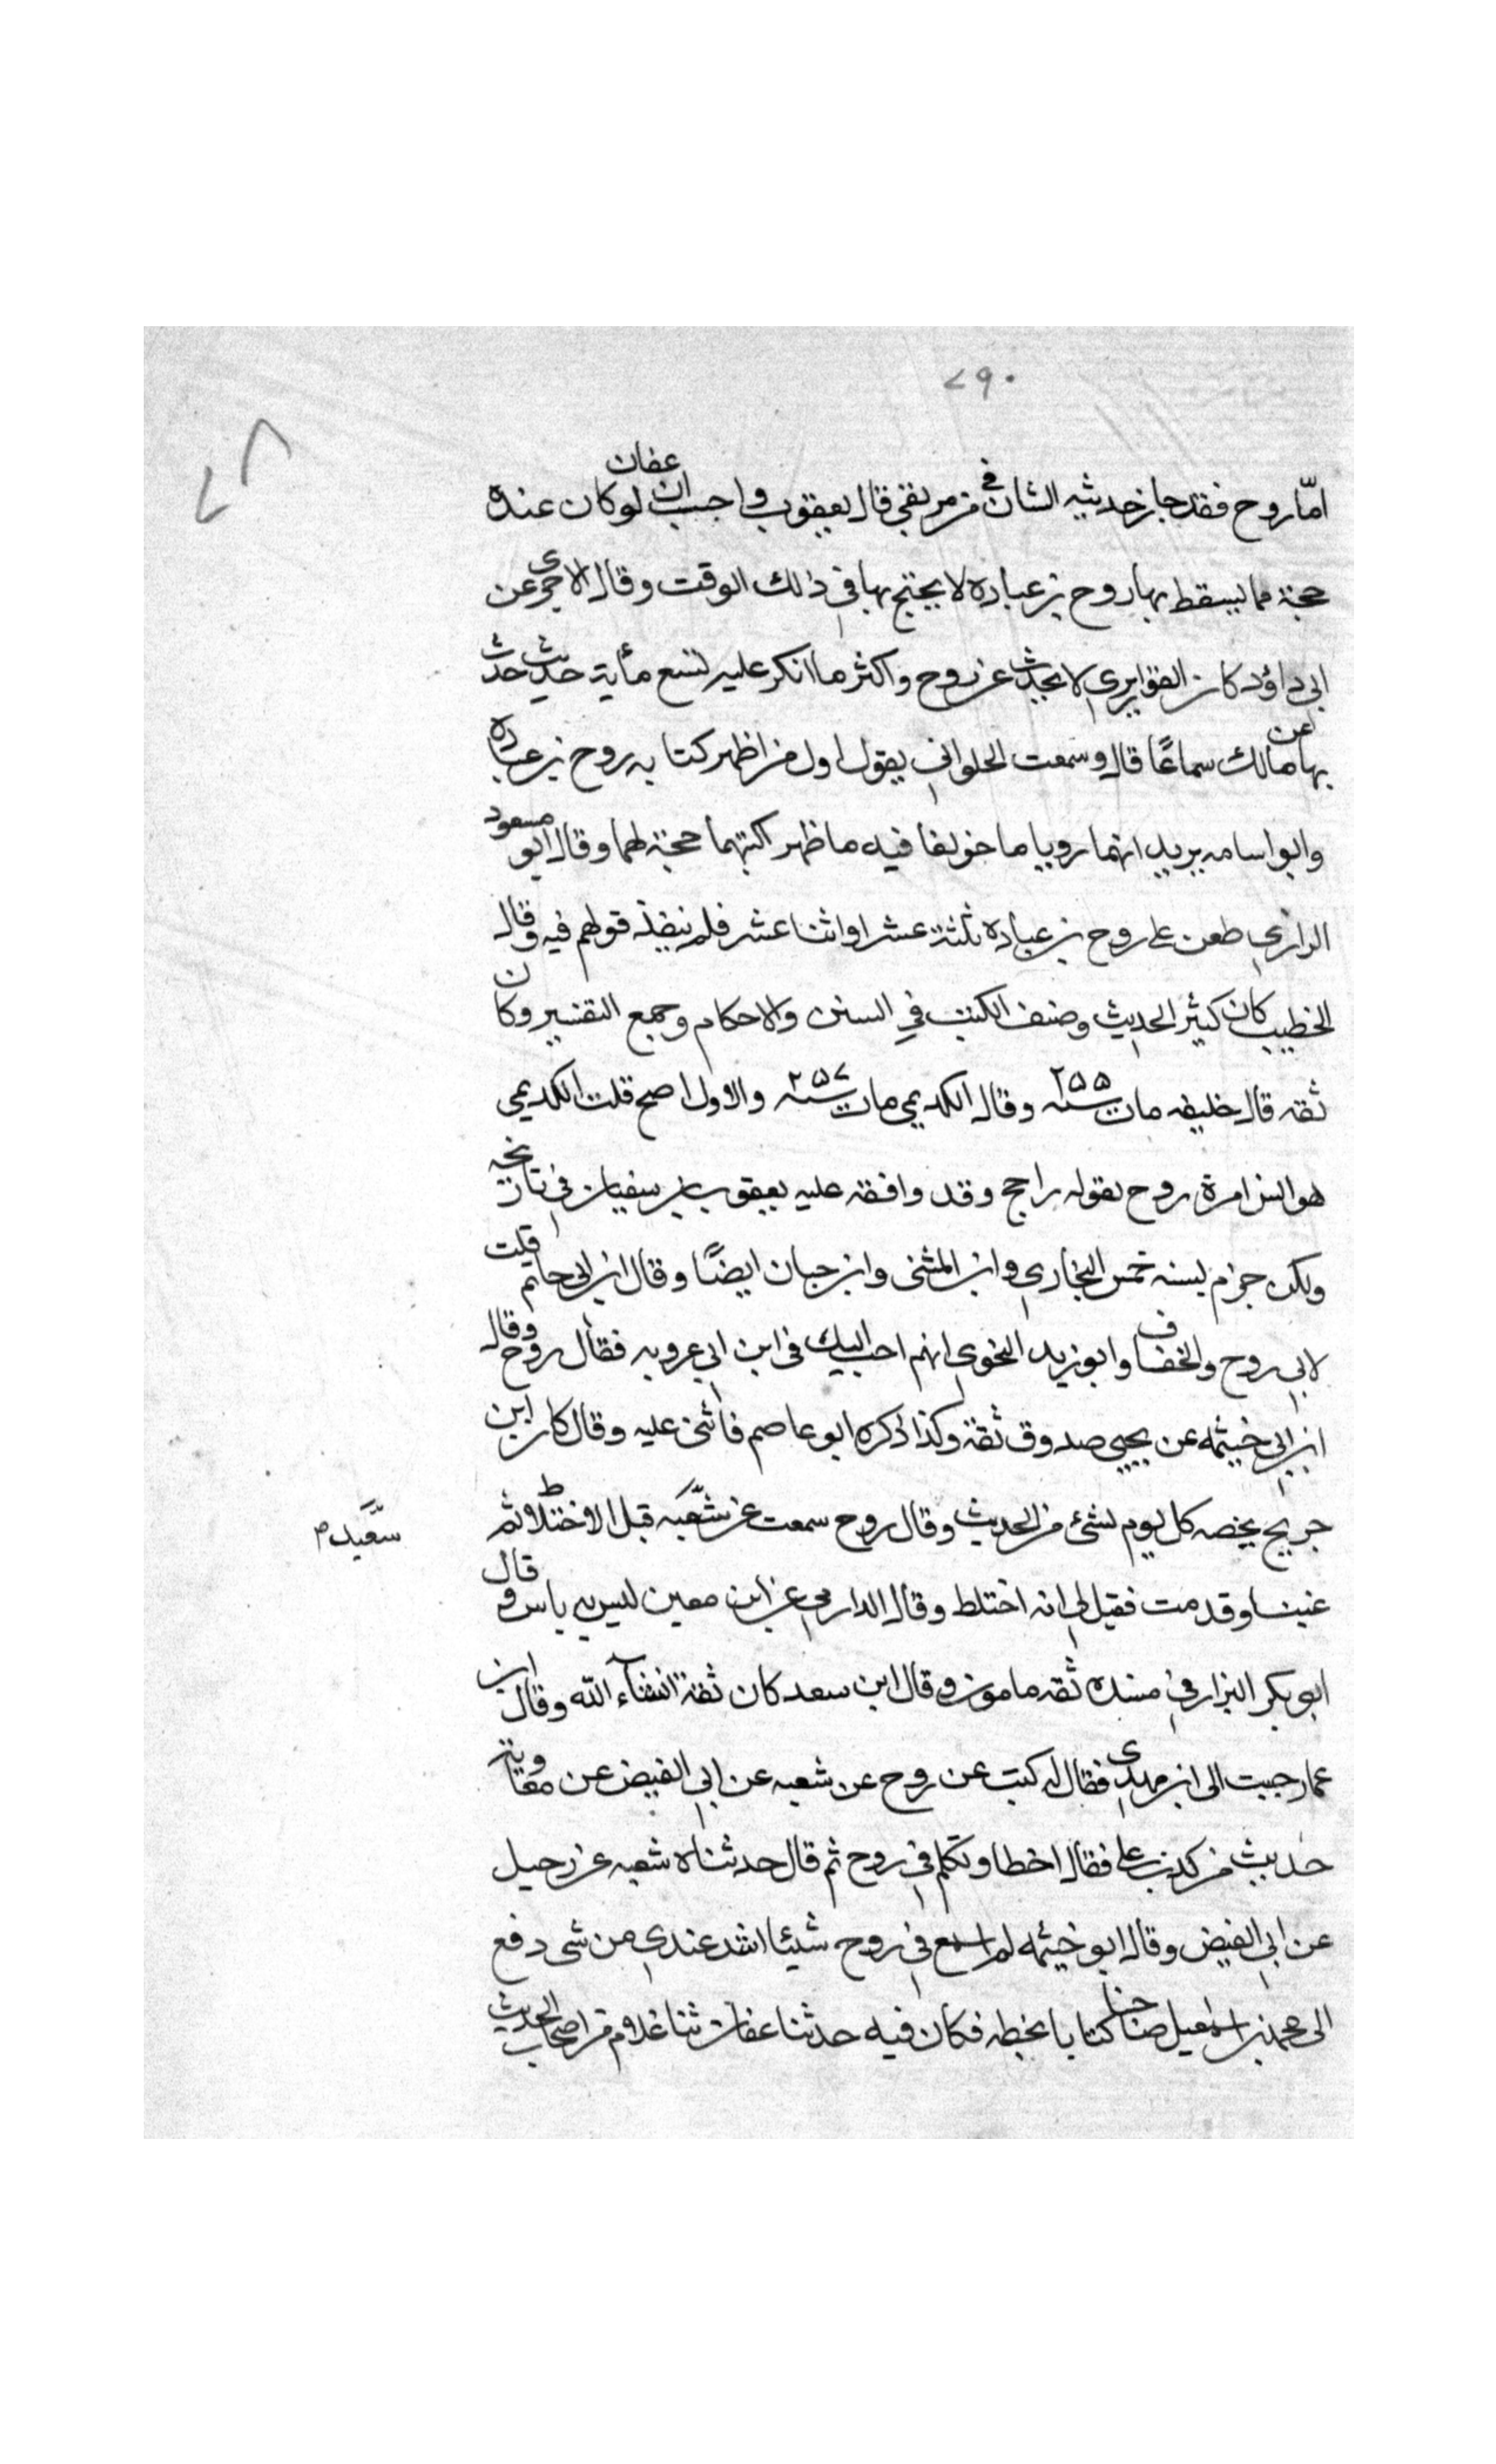 ٧٩٠
٧٨
امّا روح فقد جاز حديثه الشان في من بقي قال يعقوب واحسب ان عفان لو كان عنده
حجة مما يسقط بها روح بن عباده لا يحتج بها في ذلك الوقت وقال الاجري عن
ابي داؤد كان القواريري لا يحدث عن روح واكثر ما انكر عليه تسع مأية حديث حدث
بها عن مالك سماعًا قال وسمعت الحلواني يقول اول من اظهر كتابه روح بن عباده
وابو اسامه يريد انهما رويا ما خولفا فيه ما ظهر كتبهما حجة لهما وقال ابو مسعود
الرازي طعن على روح بن عباده ثلثة عشر او اثنا عشر فلم ينفذ قولهم فيه وقال
الخطيب كان كثير الحديث وصنف الكتب في السنن والاحكام وجمع التفسير وكان
ثقه قال خليفه مات سنه ٢٥٥ وقال الكديمي مات سنه ٢٥٧ والاول اصح قلت الكديمي
هو ابن امرة روح بقوله راجح وقد وافقه عليه يعقوب بن سفيان في تاريخه
ولكن جزم بسنه خمس البخاري وابن المثنى وابن حبان ايضًا وقال ابن ابي حاتم قلت
لابي روح والخفاف وابو زيد النحوي ايهم احب اليك في ابن ابي عروبه فقال روح وقال
ابن ابي خيثمه عن يحيى صدوق ثقة وكذا ذكره ابو عاصم فاثنى عليه وقال كان ابن
جريج يخصه كل يوم بشئ من الحديث وقال روح سمعت عن شعبه قبل الاختلاط ثم
سعيد م
غبت وقدمت فقيل لي انه اختلط وقال الدارمي عن ابن معين ليس به باس وقال
ابو بكر البزار في مسنده ثقه مامون وقال ابن سعد كان ثقة انشاء الله وقال ابن
عمار جيت الى ابن مهدي فقال لم كتبت عن روح عن شعبه عن ابي الفيض عن معاوية
حديث من كذب علي فقال اخطا وتكلم في روح ثم قال حدثناه شعبه عن رجل
عن ابي الفيض وقال ابو خيثمه لم اسمع في روح شيئا اشد عندي من شى دفع
الى محمد بن اسمعيل صاحبنا كتابا بخطه فكان فيه حدثنا عفان ثنا غلام من اصحاب الحديث